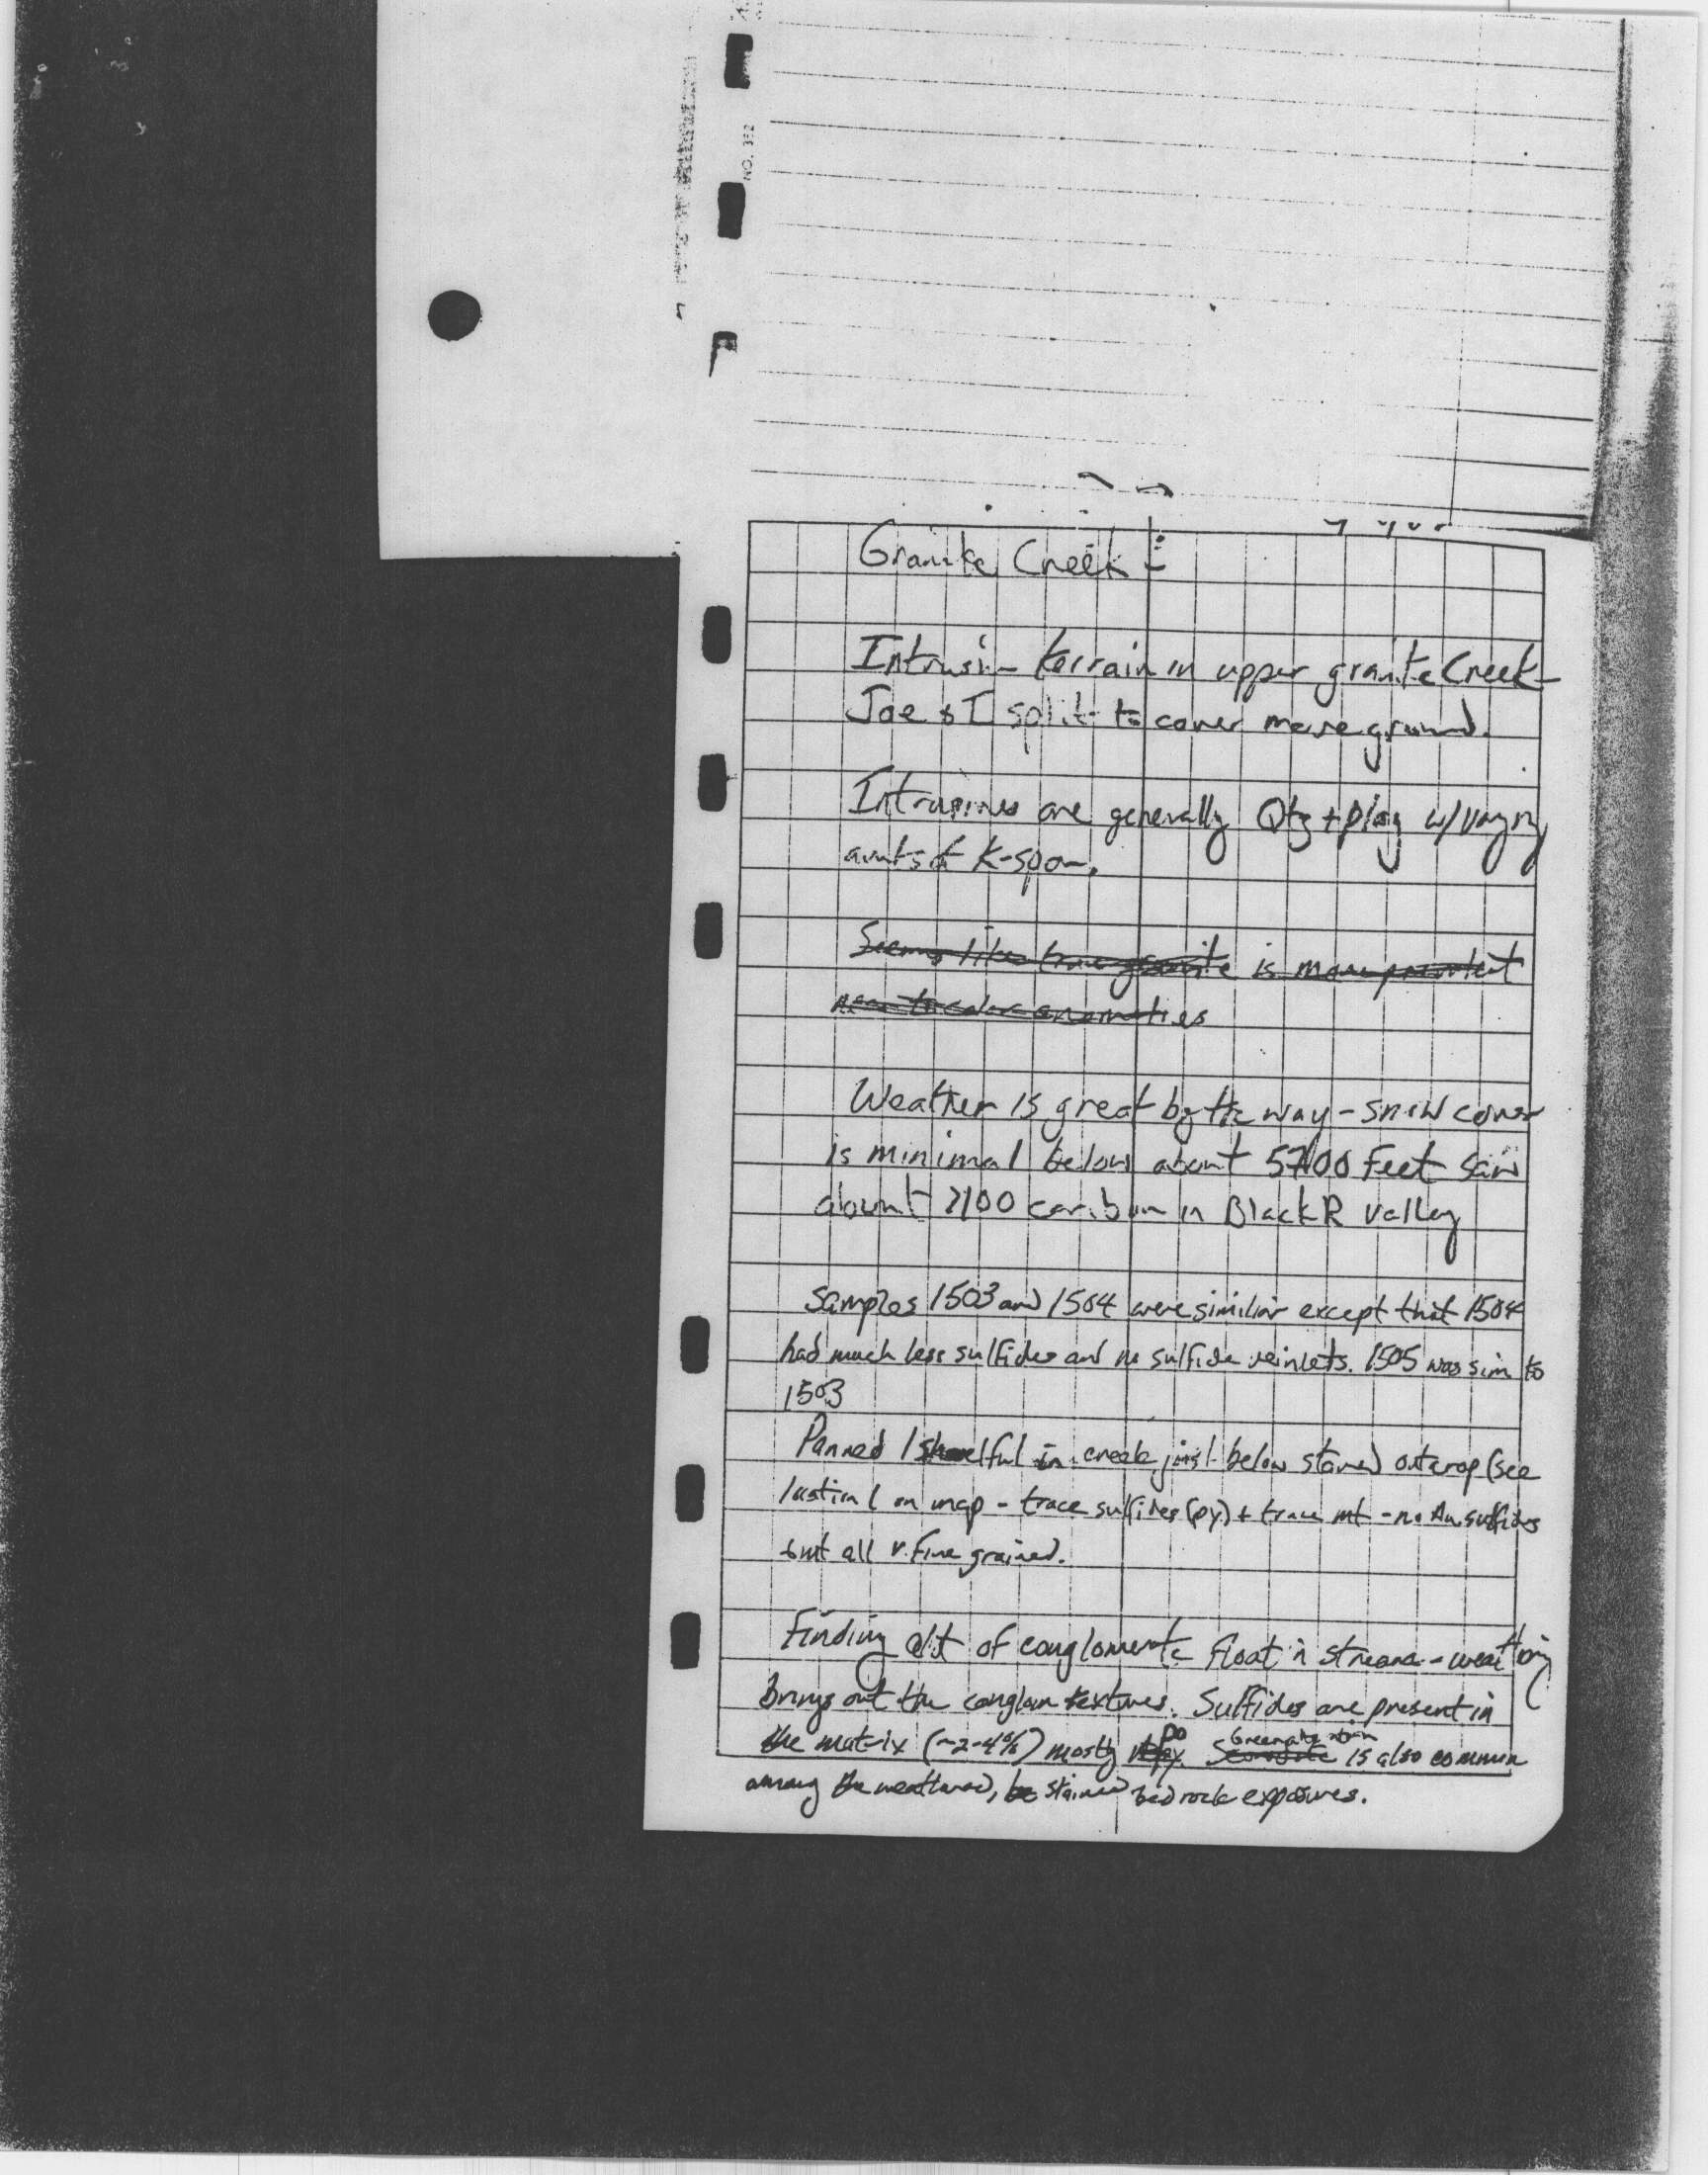 NO. 352
Granite Creek :
Intrusive terrain in upper granite Creek -
Joe & I split to cover more ground.
Intrusives are generally Qtz + plag w/ varying
amts of K-spar.
Seems like true granite is more prevalent
near the color anomalies
Weather is great by the way - snow cover
is minimal below about 5700 feet saw
about 2100 caribou in Black R valley
Samples 1503 and 1504 were similiar except that 1504
had much less sulfides and no sulfide veinlets. 1505 was sim to
1503
Panned 1 shovelful in creek just below stained outcrop (see
on map - trace sulfides (py) + trace mt - no Au sulfides
but all v. fine grained.
Finding alot of conglomerate float in streams - weathering
brings out the conglom textures. Sulfides are present in
the matrix (~2-4%) mostly po. Green stain is also common
among the weathered, stained bedrock exposures.